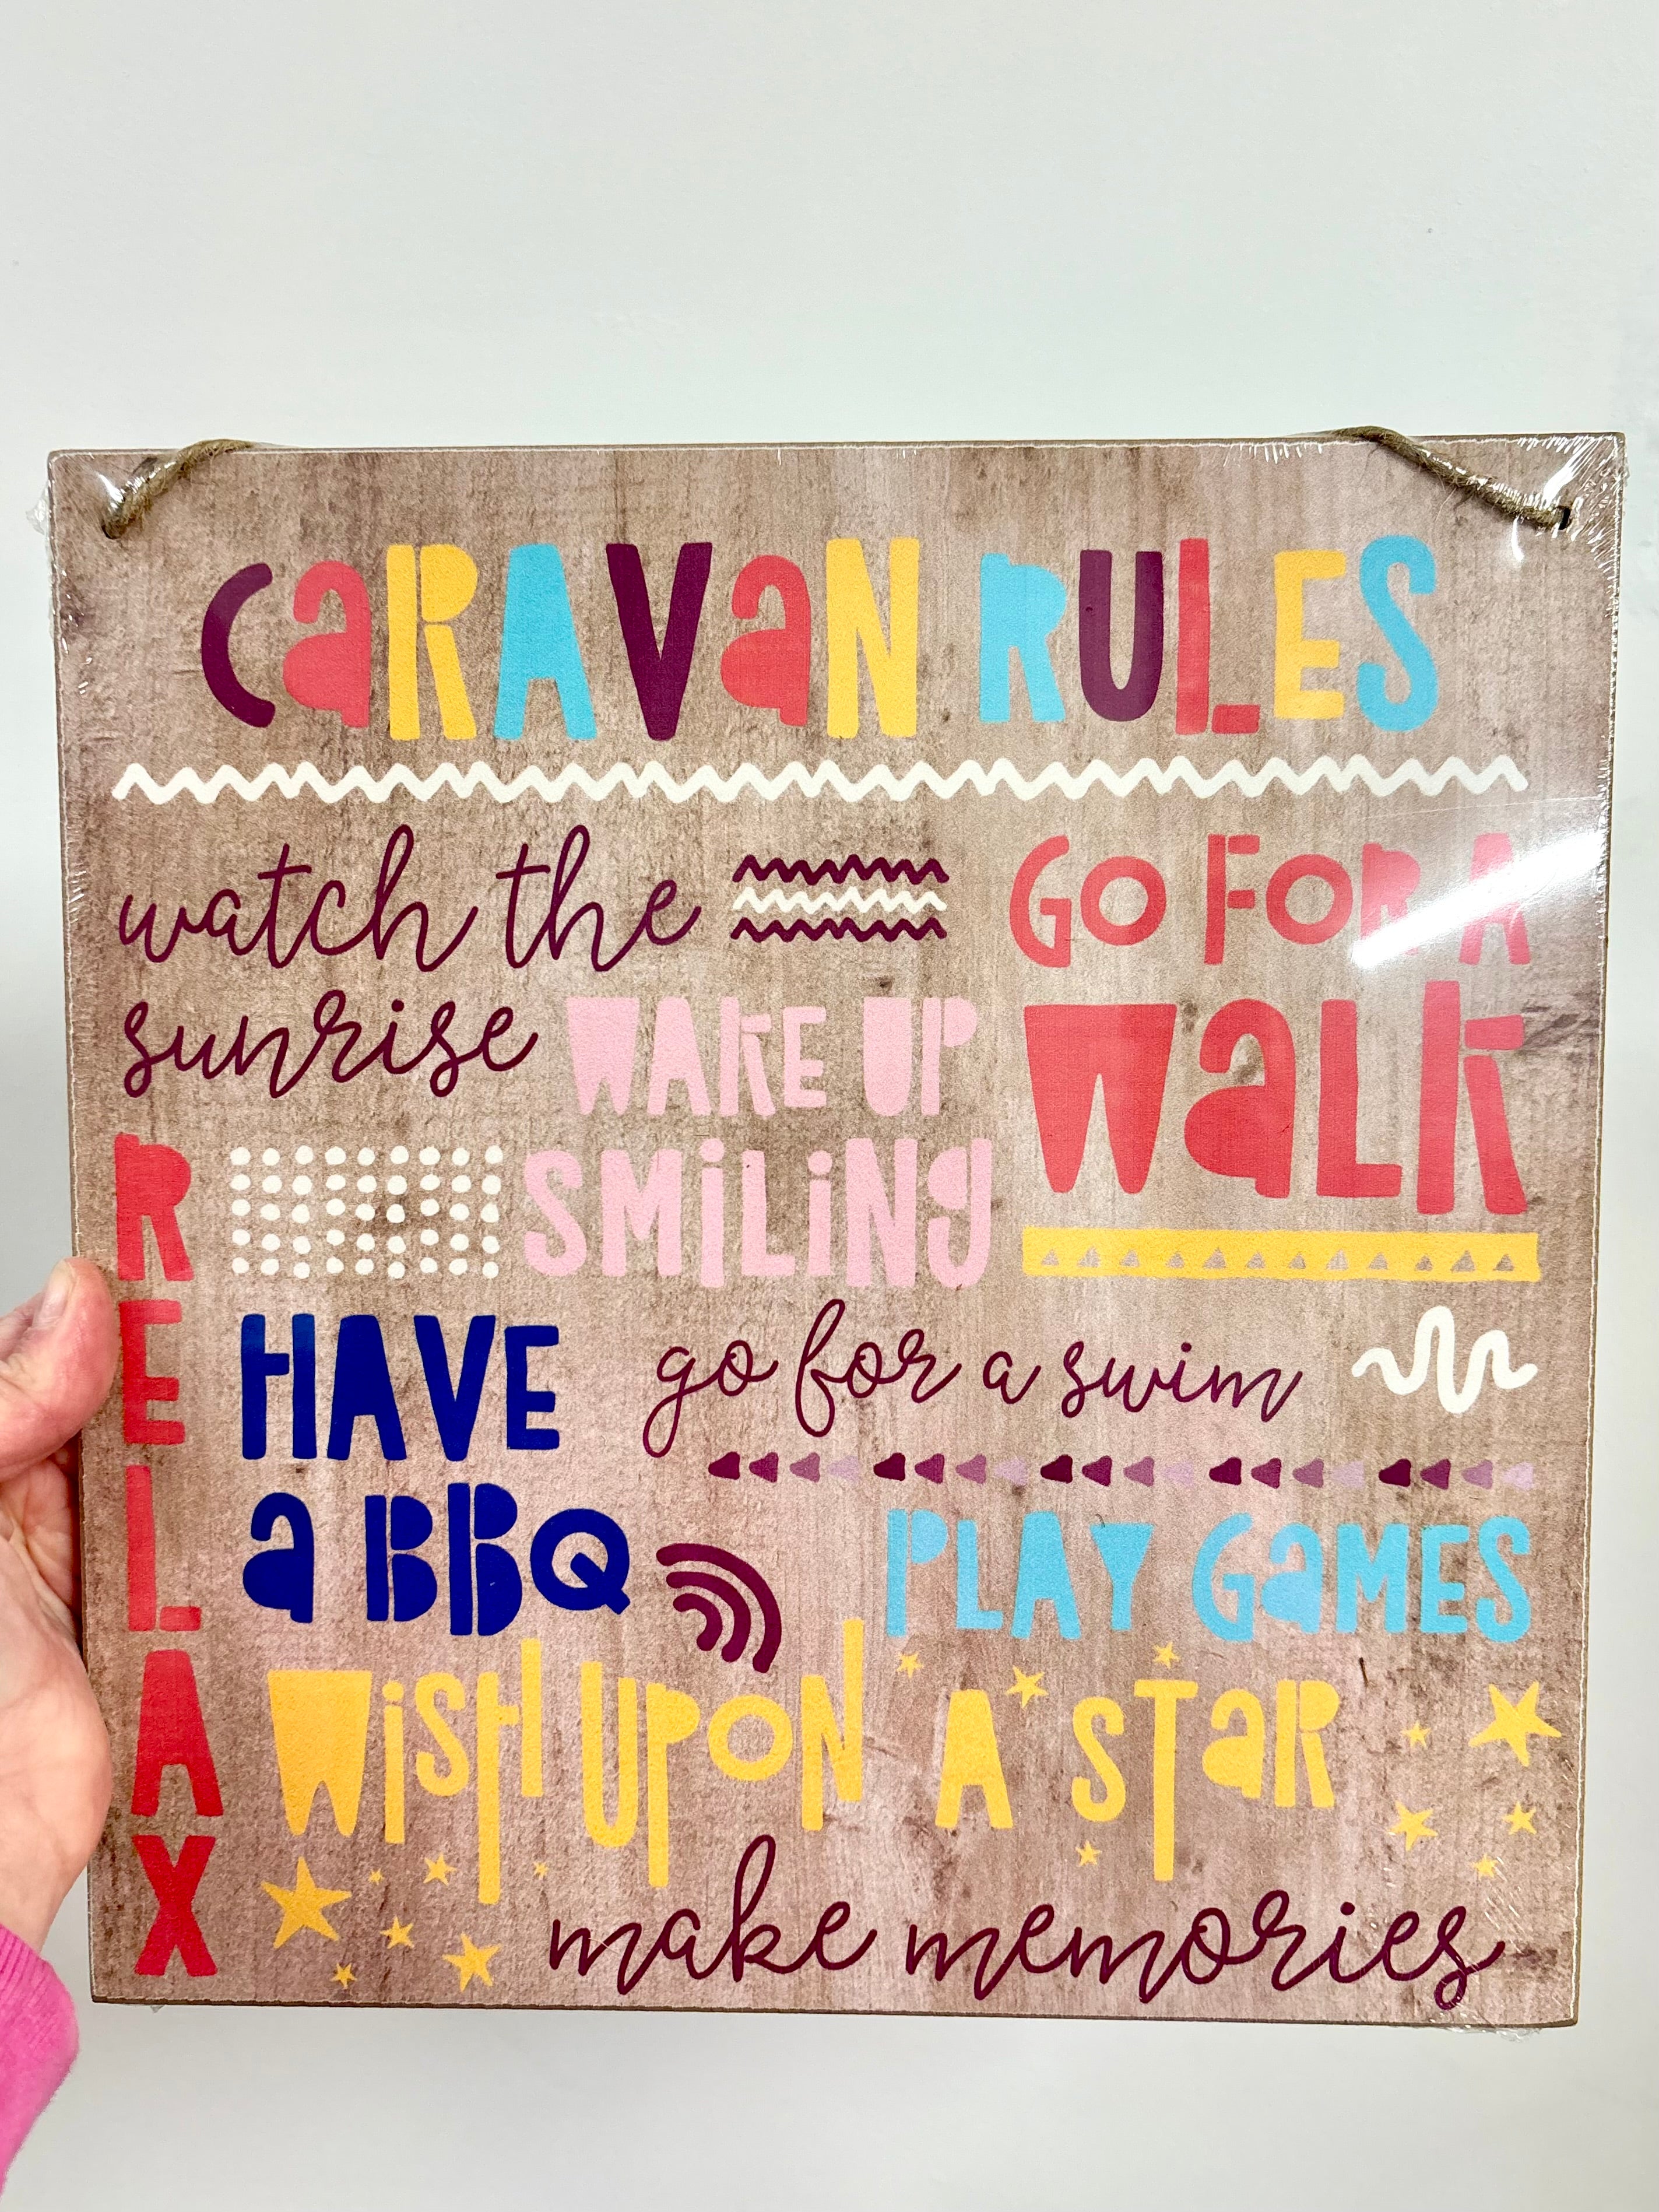 CaRAVaN RULES
watch the
sunrise
GO FOR A
WaLK
WAKE UP
SMiLiNg
RELAX
HAVE
a BBQ
go for a swim
PLAY GaMES
WiSH UPON A STaR
make memories